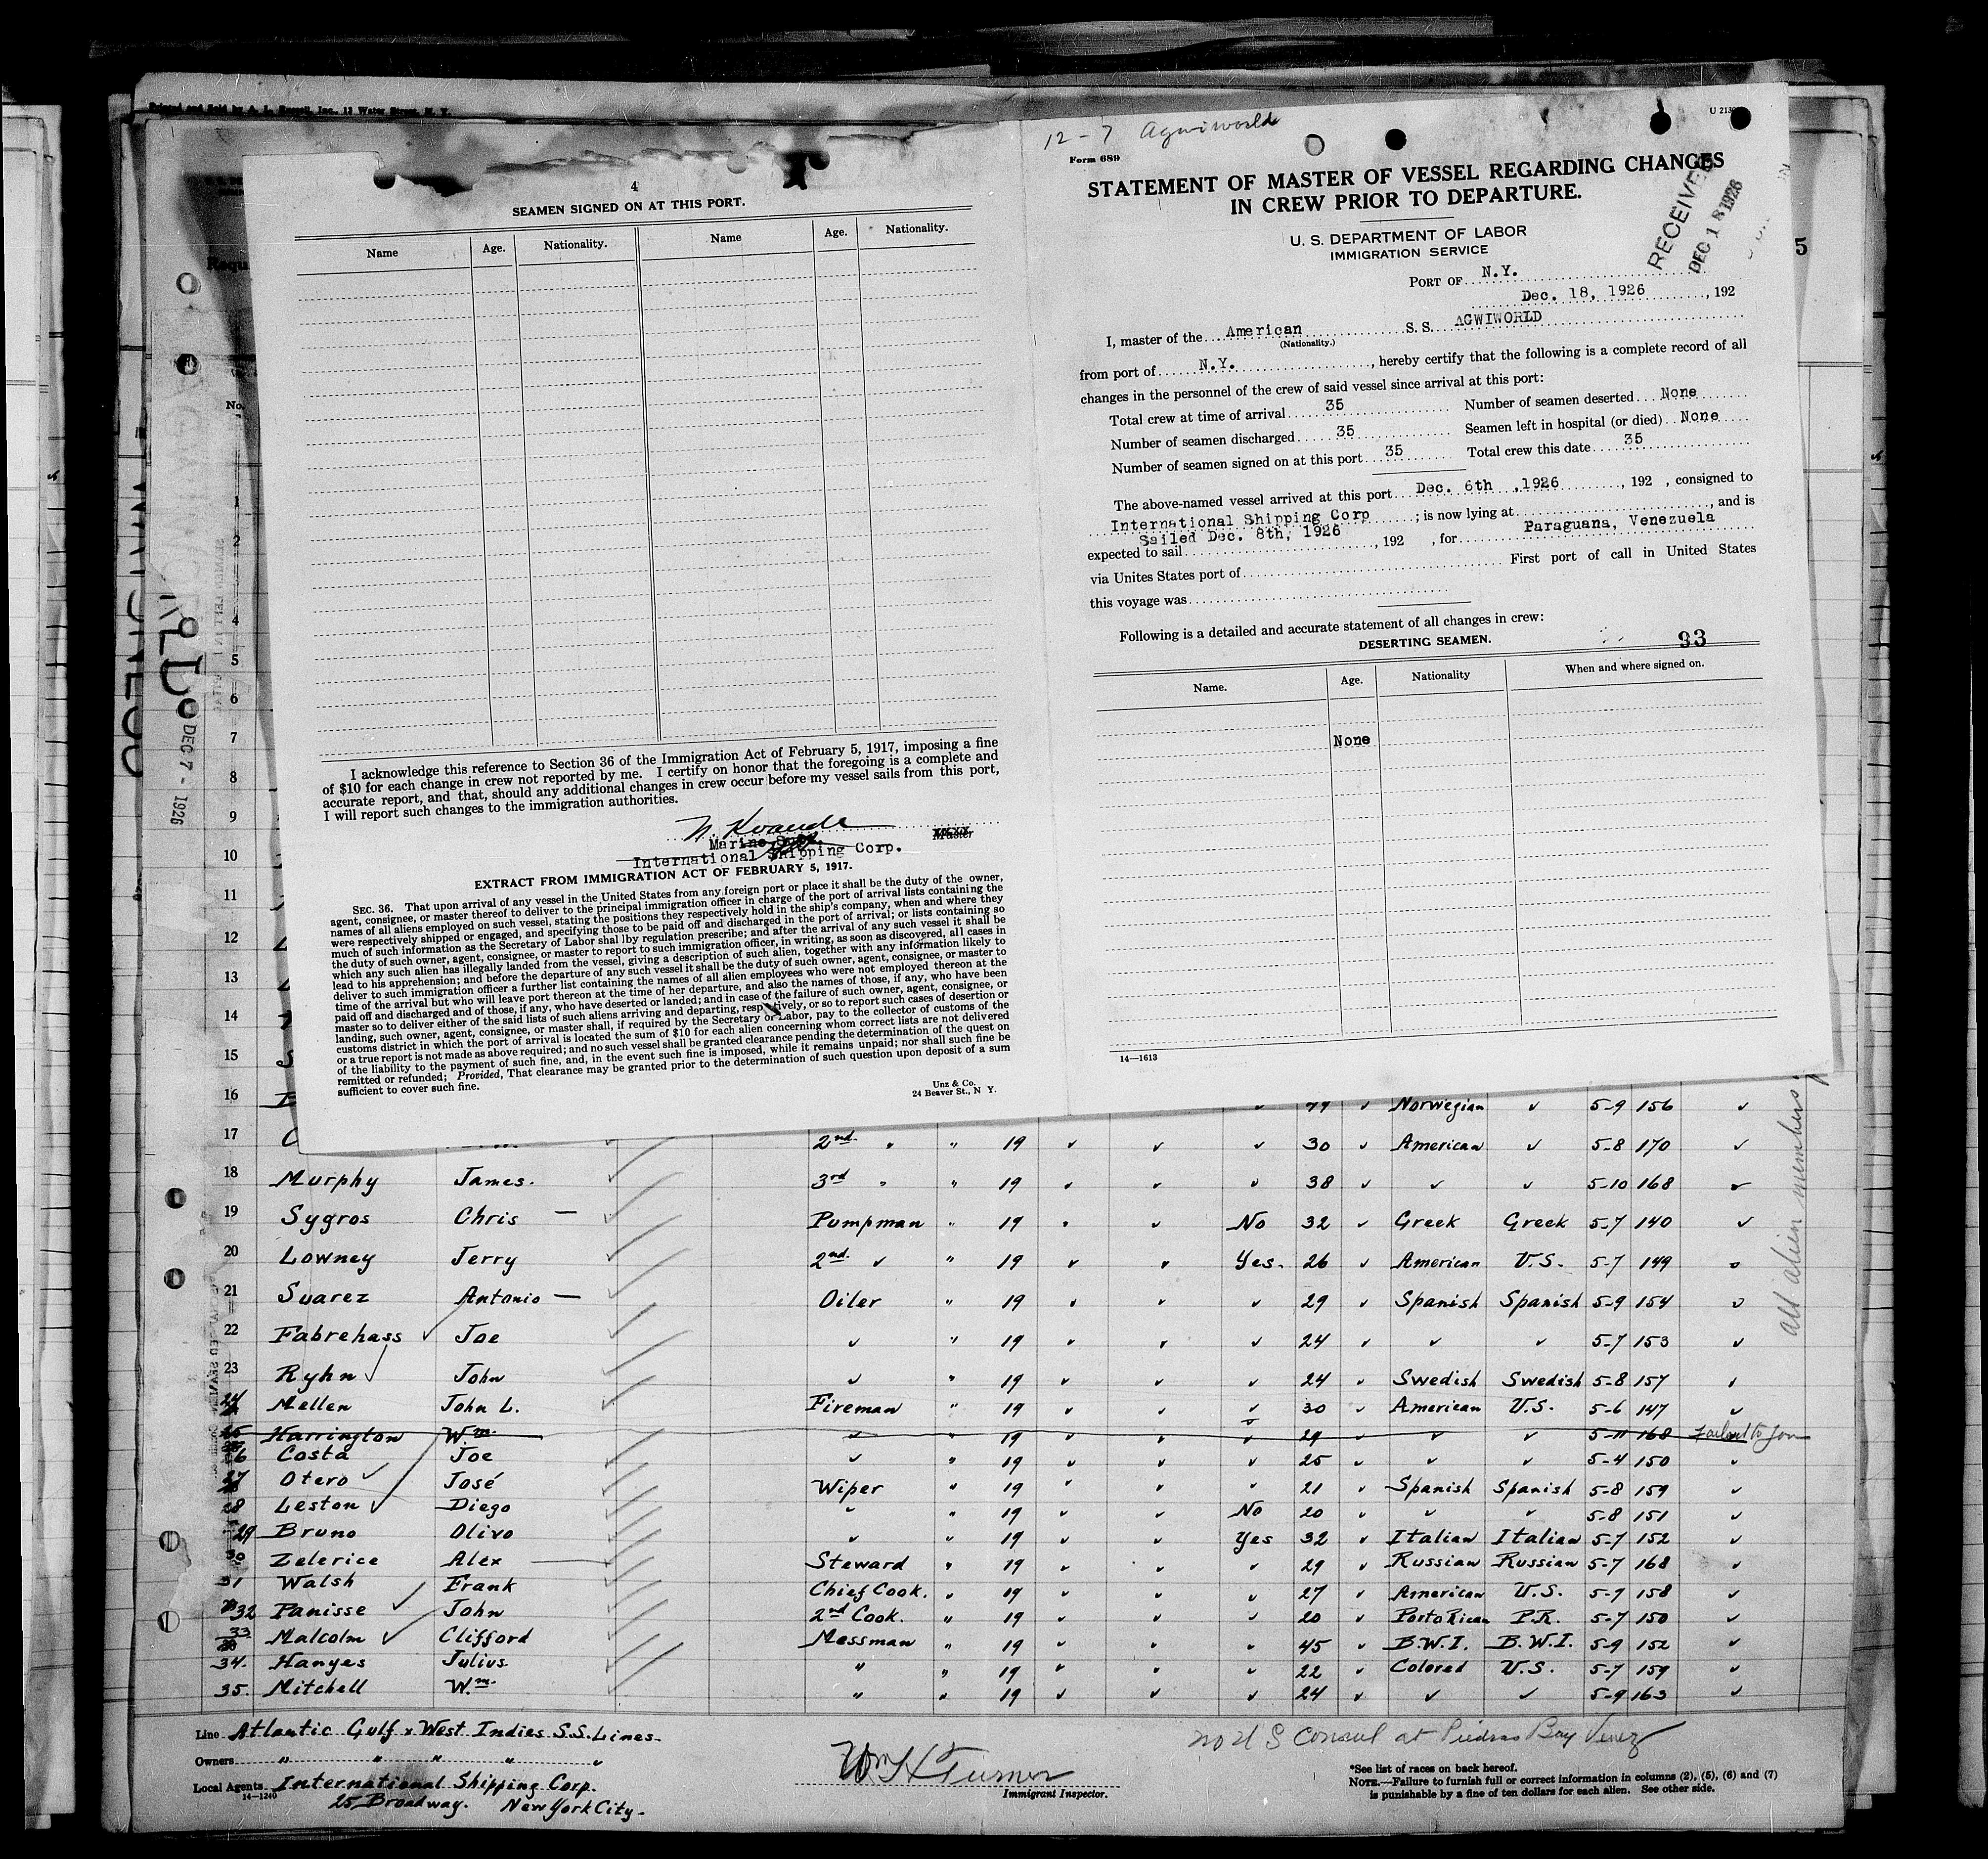 Printed and Sold by A. L. Russell, Inc., 13 Water Street, N. Y.
4
SEAMEN SIGNED ON AT THIS PORT.
Name Age. Nationality. Name Age. Nationality.
I acknowledge this reference to Section 36 of the Immigration Act of February 5, 1917, imposing a fine
of $10 for each change in crew not reported by me. I certify on honor that the foregoing is a complete and
accurate report, and that, should any additional changes in crew occur before my vessel sails from this port,
I will report such changes to the immigration authorities.
Master
International Shipping Corp.
EXTRACT FROM IMMIGRATION ACT OF FEBRUARY 5, 1917.
SEC. 36. That upon arrival of any vessel in the United States from any foreign port or place it shall be the duty of the owner,
agent, consignee, or master thereof to deliver to the principal immigration officer in charge of the port of arrival lists containing the
names of all aliens employed on such vessel, stating the positions they respectively hold in the ship's company, when and where they
were respectively shipped or engaged, and specifying those to be paid off and discharged in the port of arrival; or lists containing so
much of such information as the Secretary of Labor shal lby regulation prescribe; and after the arrival of any such vessel it shall be
the duty of such owner, agent, consignee, or master to report to such immigration officer, in writing, as soon as discovered, all cases in
which any such alien has illegally landed from the vessel, giving a description of such alien, together with any information likely to
lead to his apprehension; and before the departure of any such vessel it shall be the duty of such owner, agent, consignee, or master to
deliver to such immigration officer a further list containing the names of all alien employees who were not employed thereon at the
time of the arrival but who will leave port thereon at the time of her departure, and also the names of those, if any, who have been
paid off and discharged and of those, if any, who have deserted or landed; and in case of the failure of such owner, agent, consignee, or
master so to deliver either of the said lists of such aliens arriving and departing, respectively, or so to report such cases of desertion or
landing, such owner, agent, consignee, or master shall, if required by the Secretary of Labor, pay to the collector of customs of the
customs district in which the port of arrival is located the sum of $10 for each alien concerning whom correct lists are not delivered
or a true report is not made as above required; and no such vessel shall be granted clearance pending the determination of the quest on
of the liability to the payment of such fine, and, in the event such fine is imposed, while it remains unpaid; nor shall such fine be
remitted or refunded; Provided, That clearance may be granted prior to the determination of such question upon deposit of a sum
sufficient to cover such fine.
Unz & Co.
24 Beaver St., N Y.
12-7 Agwiworld
Form 689
STATEMENT OF MASTER OF VESSEL REGARDING CHANGES
IN CREW PRIOR TO DEPARTURE.
RECEIVED
DEC 18 1926
U. S. DEPARTMENT OF LABOR
IMMIGRATION SERVICE
PORT OF N.Y.
Dec. 18, 1926 , 192
I, master of the American S. S. AGWIWORLD
(Nationality.)
from port of N.Y. , hereby certify that the following is a complete record of all
changes in the personnel of the crew of said vessel since arrival at this port:
Total crew at time of arrival 35 Number of seamen deserted None
Number of seamen discharged 35 Seamen left in hospital (or died) None
Number of seamen signed on at this port 35 Total crew this date 35
The above-named vessel arrived at this port Dec. 6th ,1926 , 192 , consigned to
International Shipping Corp ; is now lying at , and is
expected to sail Sailed Dec. 8th, 1926 , 192 , for Paraguana, Venezuela
via Unites States port of First port of call in United States
this voyage was
Following is a detailed and accurate statement of all changes in crew:
93
DESERTING SEAMEN.
Name. Age. Nationality When and where signed on.
None
14—1613
5
No.
DEC 7 - 1926
1
2
4
5
6
7
8
9
10
11
12
13
14
15
16 Norwegian ✓ 5-9 156 ✓
17 2nd " " 19 ✓ ✓ ✓ 30 ✓ American ✓ 5-8 170 ✓
18 Murphy James. 3rd " " 19 ✓ ✓ ✓ 38 ✓ ✓ ✓ 5-10 168 ✓
19 Sygros Chris — Pumpman " 19 ✓ ✓ No 32 ✓ Greek Greek 5-7 140 ✓
20 Lowney Jerry 2nd ✓ " 19 ✓ ✓ Yes. 26 ✓ American U.S. 5-7 149 ✓
21 Suarez Antonio — Oiler " 19 ✓ ✓ ✓ 29 ✓ Spanish Spanish 5-9 154 ✓
22 Fabrehass ✓ Joe ✓ " 19 ✓ ✓ ✓ 24 ✓ ✓ ✓ 5-7 153 ✓
23 Ryhn ✓ John ✓ " 19 ✓ ✓ ✓ 24 ✓ Swedish Swedish 5-8 157 ✓
24 Mellen John L. Fireman " 19 ✓ ✓ ✓ 30 ✓ American U.S. 5-6 147 ✓
Harrington Wm ✓ " 19 ✓ ✓ ✓ 29 ✓ ✓ ✓ 5-11 168 Failed to Join
26 Costa Joe ✓ " 19 ✓ ✓ ✓ 25 ✓ ✓ ✓ 5-4 150 ✓
27 Otero ✓ José Wiper " 19 ✓ ✓ ✓ 21 ✓ Spanish Spanish 5-8 159 ✓
28 Leston ✓ Diego ✓ " 19 ✓ ✓ No 20 ✓ ✓ ✓ 5-8 151 ✓
29 Bruno Olivo ✓ " 19 ✓ ✓ Yes 32 ✓ Italian Italian 5-7 152 ✓
30 Zelerice Alex — Steward " 19 ✓ ✓ ✓ 29 ✓ Russian Russian 5-7 168 ✓
31 Walsh Frank Chief Cook. ✓ 19 ✓ ✓ ✓ 27 ✓ American U.S. 5-7 158 ✓
32 Panisse ✓ John 2nd Cook. " 19 ✓ ✓ ✓ 20 ✓ Porto Rican P.R. 5-7 150 ✓
33 Malcolm ✓ Clifford Messman " 19 ✓ ✓ ✓ 45 ✓ B.W.I. B.W.I. 5-9 152 ✓
34. Hanyes Julius " " 19 ✓ ✓ ✓ 22 ✓ Colored U.S. 5-7 159 ✓
35. Mitchell Wm " " 19 ✓ ✓ ✓ 24 ✓ ✓ ✓ 5-9 163 ✓
all alien members
Line Atlantic Gulf & West Indies S.S. Lines.
Owners " " " " "
Local Agents International Shipping Corp.
14—1240
25 Broadway. New York City.
Wm H Turner
Immigrant Inspector.
no U S Consul at Piedras Bay Venez
*See list of races on back hereof.
NOTE.—Failure to furnish full or correct information in columns (2), (5), (6) and (7)
is punishable by a fine of ten dollars for each alien. See other side.